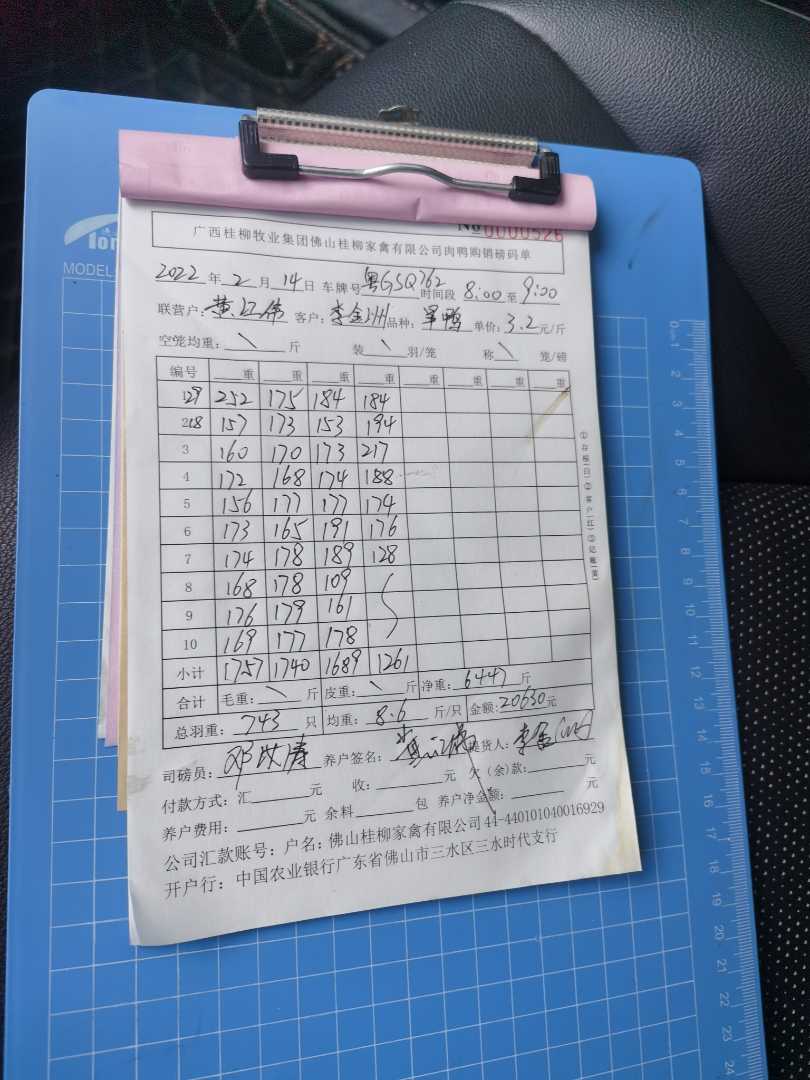 MODEL
No 0000526
广西桂柳牧业集团佛山桂柳家禽有限公司肉鸭购销磅码单
2022 年 2 月 14 日 车牌号 粤GSQ762 时间段 8:00 至 9:00
联营户: 黄江伟 客户: 李金洲 品种: 旱鸭 单价: 3.2 元/斤
空笼均重: \ 斤 装 \ 羽/笼 称 \ 笼/磅
编号 重 重 重 重 重 重 重 重
1 29 252 175 184 184
2 28 157 173 153 194
3 160 170 173 217
4 172 168 174 188
5 156 177 177 174
6 173 165 191 176
7 174 178 189 128
8 168 178 109
9 176 179 161
10 169 177 178
小计 1757 1740 1689 1261
合计 毛重: \ 斤 皮重: \ 斤 净重: 6447 斤
总羽重: 743 只 均重: 8.6 斤/只 金额: 20630 元
司磅员: 养户签名: 提货人: 李金
付款方式: 汇 元 收: 元 欠(余)款: 元
养户费用: 元 余料 包 养户净金额: 元
公司汇款账号: 户名: 佛山桂柳家禽有限公司 44-440101040016929
开户行: 中国农业银行广东省佛山市三水区三水时代支行
①存根(白)②客户(红)③记账(黄)
0 1 2 3 4 5 6 7 8 9 10 11 12 13 14 15 16 17 18 19 20 21 22 23 24